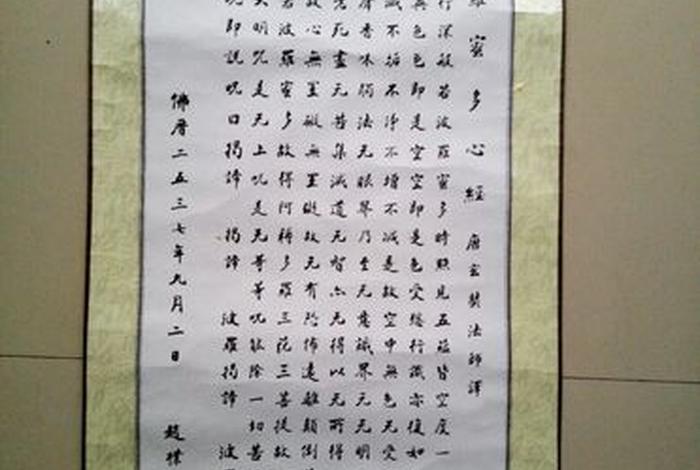 蜜多心經 唐玄奘法師譯
行深般若波羅蜜多時照見五蕴皆空度一
無色色即是空空即是色受想行識亦復如
滅不垢不淨不增不减是故空中無色无受
香味觸法无眼界乃至无意識界无无明
老死盡无苦集滅道无智亦无得以无所得
故心無罣礙無罣礙故无有恐怖遠離顛倒
若波羅蜜多故得阿耨多羅三藐三菩提故
大明咒是无上咒是无等等咒能除一切苦
即說咒曰揭諦 揭諦 波羅揭諦 波
佛曆二五三七年九月二日 趙樸